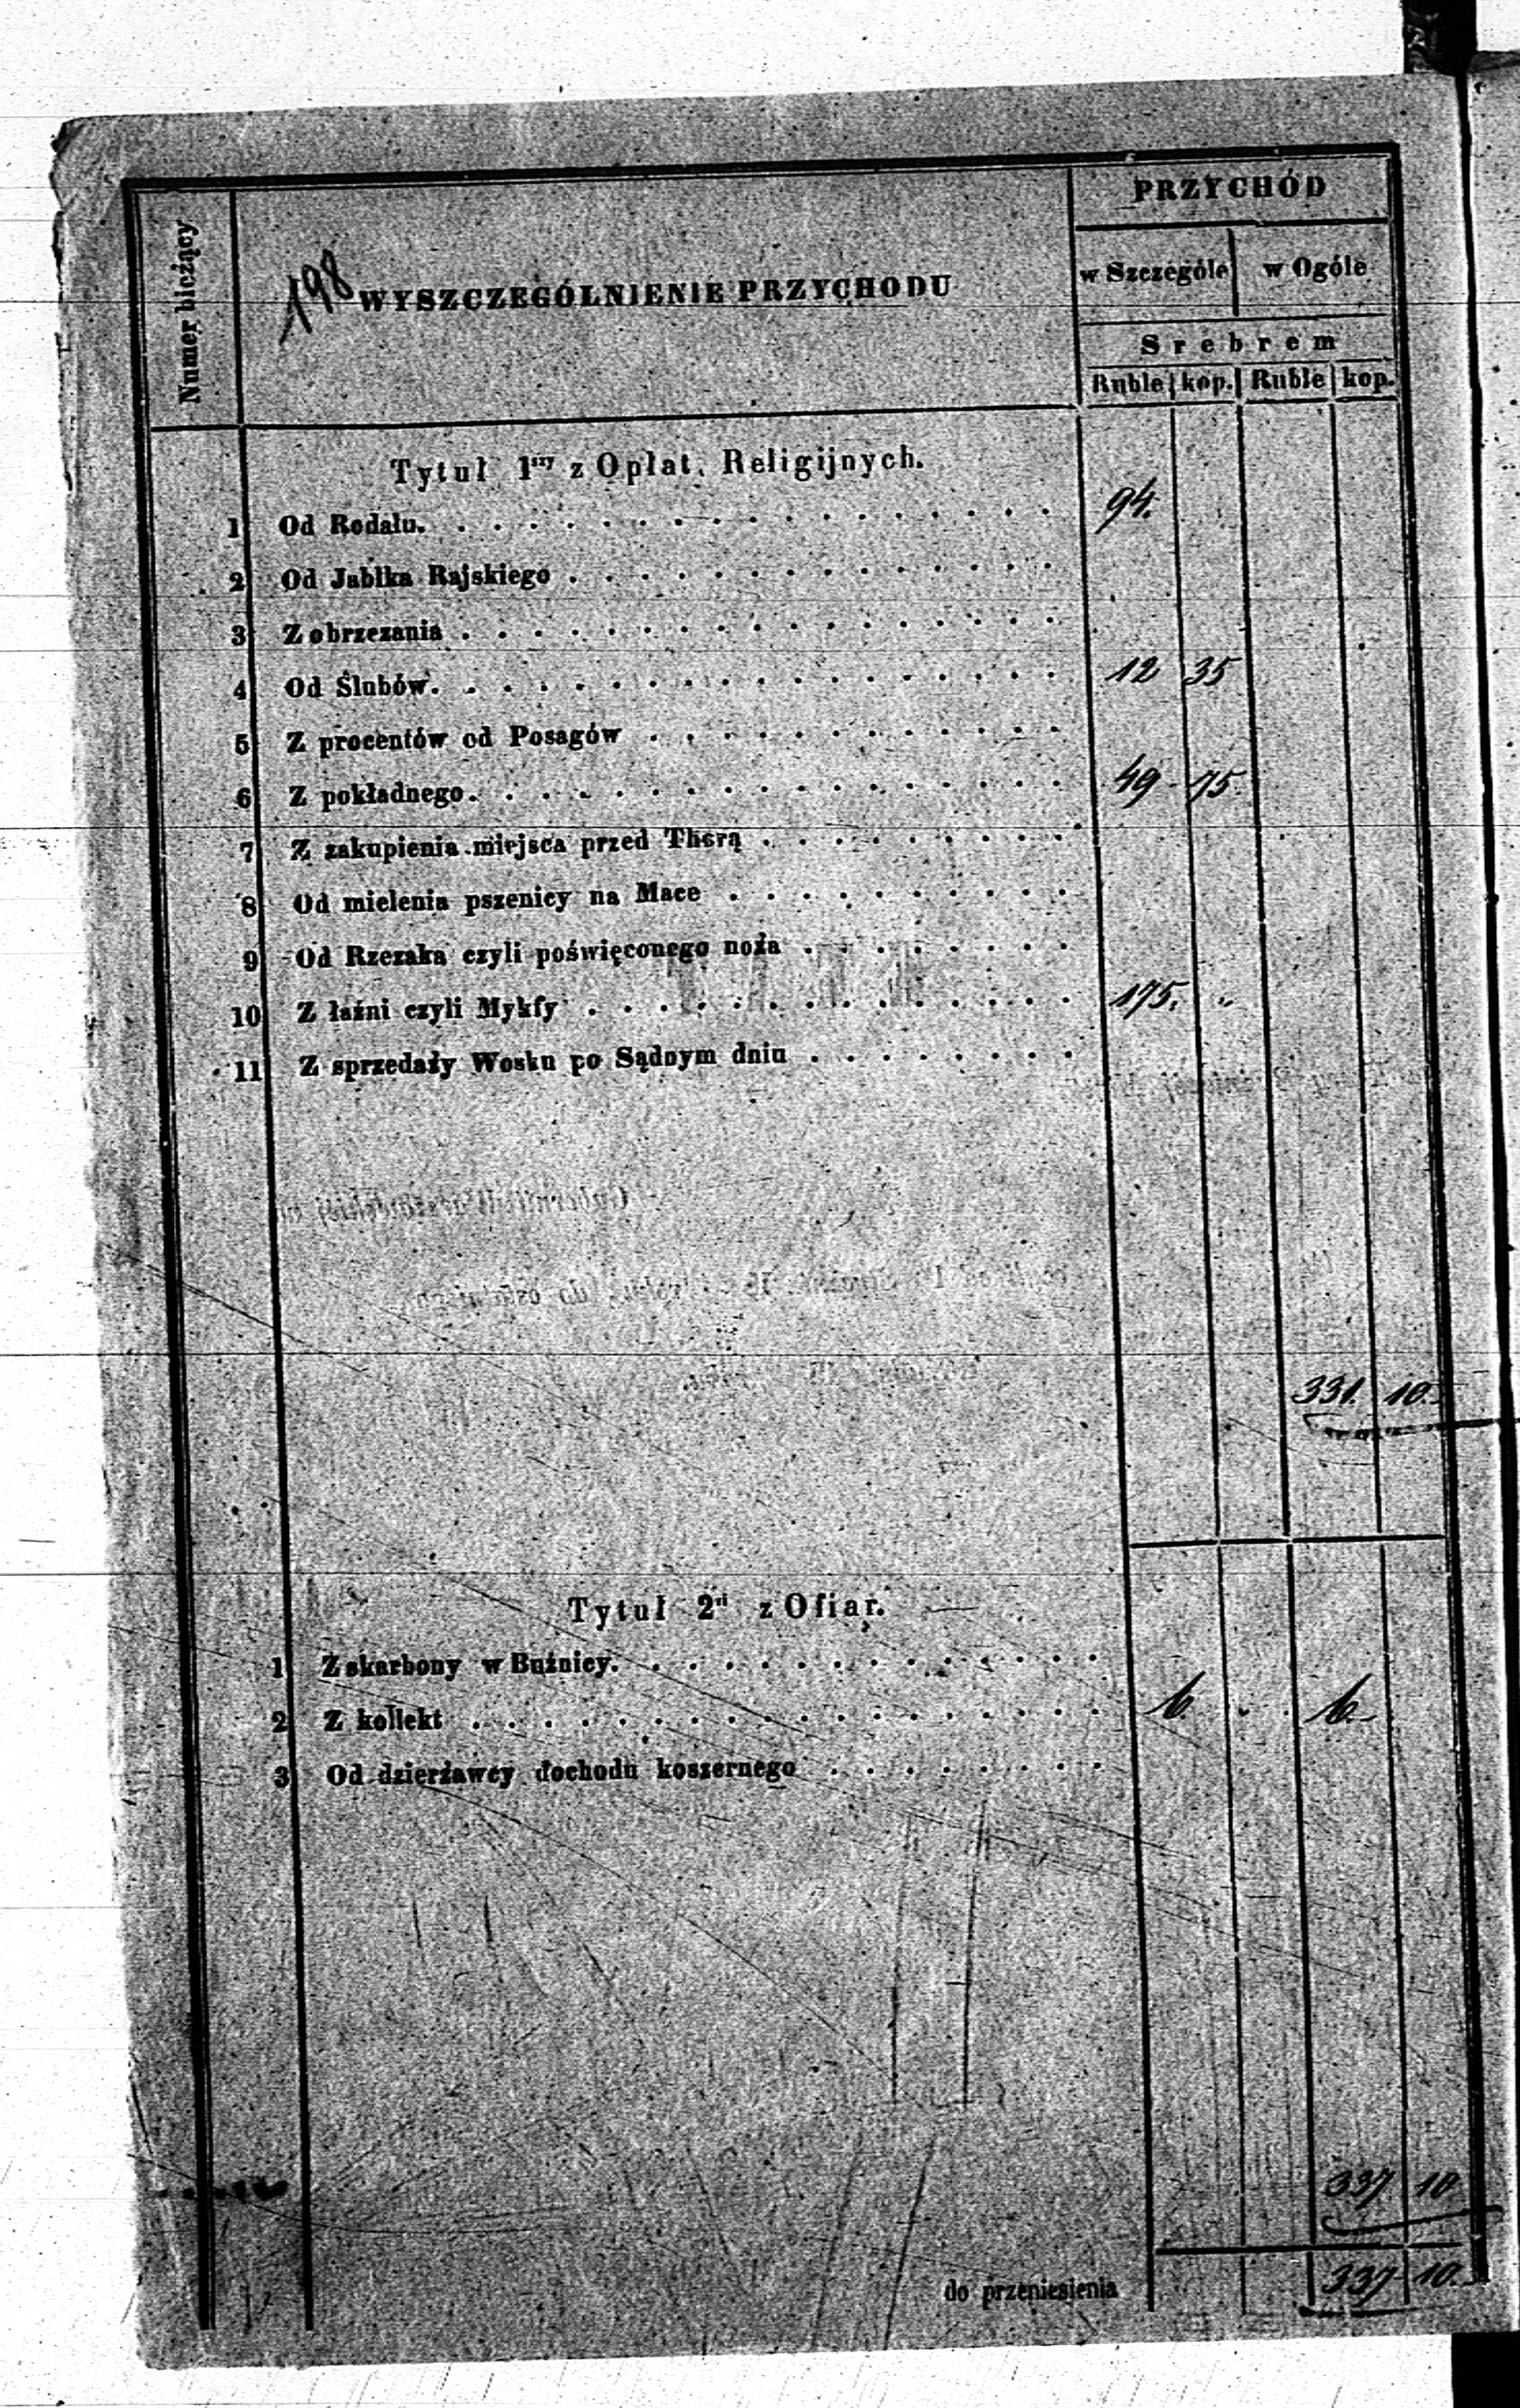 PRZYCHÓD
Numer bieżący
198 WYSZCZEGÓLNIENIE PRZYCHODU
w Szczególe w Ogóle
Srebrem
Ruble kop. Ruble kop.
Tytuł 1szy z Opłat. Religijnych.
1 Od Rodału. 94.
2 Od Jabłka Rajskiego
3 Z obrzezania
4 Od Ślubów. 12 35
5 Z procentów od Posagów
6 Z pokładnego. 49 75
7 Z zakupienia miejsca przed Thorą
8 Od mielenia pszenicy na Mace
9 Od Rzezaka czyli poświęconego noża
10 Z łaźni czyli Mykfy 175. "
11 Z sprzedaży Wosku po Sądnym dniu
331. 10.
Tytuł 2gi z Ofiar.
1 Z skarbony w Bużnicy.
2 Z kollekt 6. 6.
3 Od dzierżawcy dochodu koszernego
337 10
do przeniesienia 337 10.